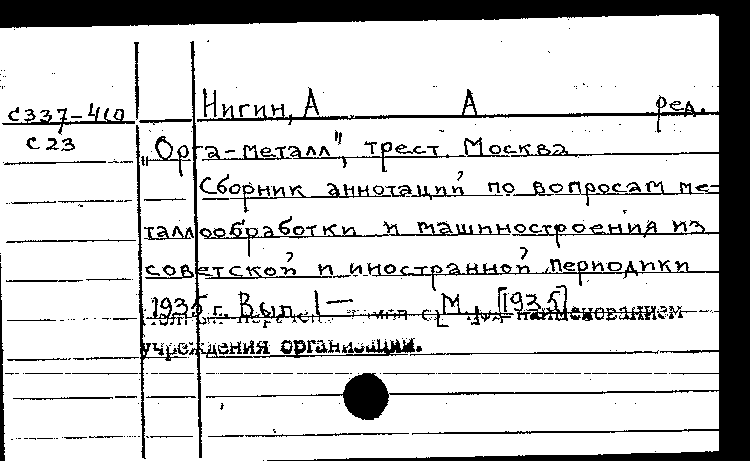 С337-410
С23
Нигин, А А ред.
„Орга-металл", трест. Москва
Сборник аннотаций по вопросам ме-
таллообработки и машиностроения из
советской и иностранной периодики
1935 г. Вып. 1— М., [1935]
наименованием
учреждения организации.